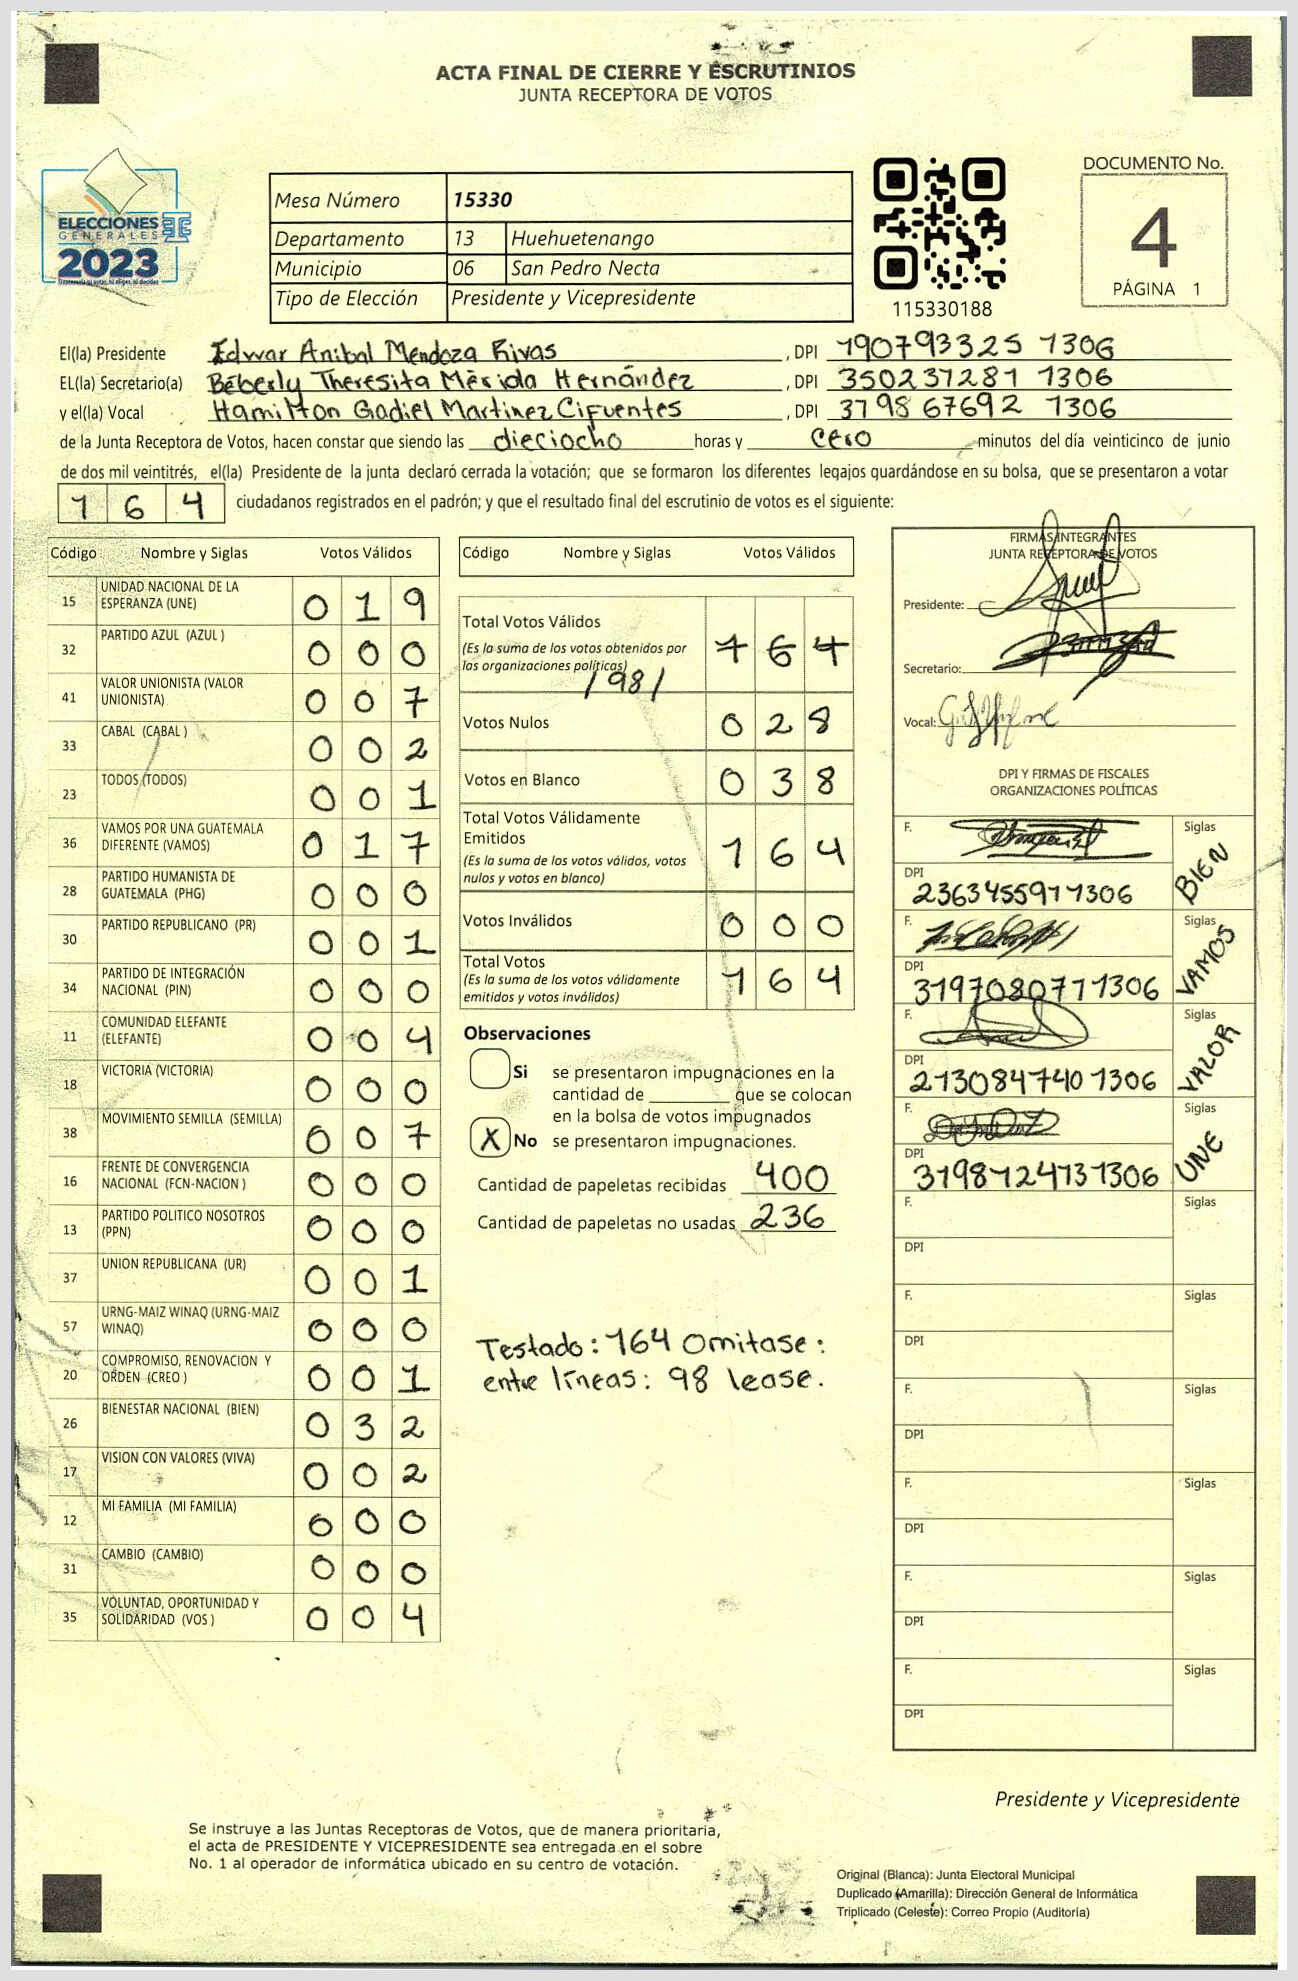 ACTA FINAL DE CIERRE Y ESCRUTINIOS
JUNTA RECEPTORA DE VOTOS
ELECCIONES
GENERALES
2023
Mesa Número 15330
Departamento 13 Huehuetenango
Municipio 06 San Pedro Necta
Tipo de Elección Presidente y Vicepresidente
115330188
DOCUMENTO No.
4
PÁGINA 1
El(la) Presidente Edwar Anibal Mendoza Rivas, DPI 190793325 1306
EL(la) Secretario(a) Béberly Theresita Mérida Hernández, DPI 350237281 1306
y el(la) Vocal Hamilton Gadiel Martinez Cifuentes, DPI 3798 67692 1306
de la Junta Receptora de Votos, hacen constar que siendo las dieciocho horas y cero minutos del día veinticinco de junio
de dos mil veintitrés, el(la) Presidente de la junta declaró cerrada la votación; que se formaron los diferentes legajos quardándose en su bolsa, que se presentaron a votar
1 6 4 ciudadanos registrados en el padrón; y que el resultado final del escrutinio de votos es el siguiente:
Código Nombre y Siglas Votos Válidos
15 UNIDAD NACIONAL DE LA ESPERANZA (UNE) 0 1 9
32 PARTIDO AZUL (AZUL ) 0 0 0
41 VALOR UNIONISTA (VALOR UNIONISTA) 0 0 7
33 CABAL (CABAL ) 0 0 2
23 TODOS (TODOS) 0 0 1
36 VAMOS POR UNA GUATEMALA DIFERENTE (VAMOS) 0 1 7
28 PARTIDO HUMANISTA DE GUATEMALA (PHG) 0 0 0
30 PARTIDO REPUBLICANO (PR) 0 0 1
34 PARTIDO DE INTEGRACIÓN NACIONAL (PIN) 0 0 0
11 COMUNIDAD ELEFANTE (ELEFANTE) 0 0 4
18 VICTORIA (VICTORIA) 0 0 0
38 MOVIMIENTO SEMILLA (SEMILLA) 0 0 7
16 FRENTE DE CONVERGENCIA NACIONAL (FCN-NACION ) 0 0 0
13 PARTIDO POLITICO NOSOTROS (PPN) 0 0 0
37 UNION REPUBLICANA (UR) 0 0 1
57 URNG-MAIZ WINAQ (URNG-MAIZ WINAQ) 0 0 0
20 COMPROMISO, RENOVACION Y ORDEN (CREO ) 0 0 1
26 BIENESTAR NACIONAL (BIEN) 0 3 2
17 VISION CON VALORES (VIVA) 0 0 2
12 MI FAMILIA (MI FAMILIA) 0 0 0
31 CAMBIO (CAMBIO) 0 0 0
35 VOLUNTAD, OPORTUNIDAD Y SOLIDARIDAD (VOS ) 0 0 4
Código Nombre y Siglas Votos Válidos
Total Votos Válidos 1 6 4
(Es la suma de los votos obtenidos por
las organizaciones políticas)
/98/
Votos Nulos 0 2 8
Votos en Blanco 0 3 8
Total Votos Válidamente
Emitidos 1 6 4
(Es la suma de los votos válidos, votos
nulos y votos en blanco)
Votos Inválidos 0 0 0
Total Votos 1 6 4
(Es la suma de los votos válidamente
emitidos y votos inválidos)
Observaciones
Si se presentaron impugnaciones en la
cantidad de ________ que se colocan
en la bolsa de votos impugnados
X No se presentaron impugnaciones.
Cantidad de papeletas recibidas 400
Cantidad de papeletas no usadas 236
Testado: 164 Omitase:
entre líneas: 98 lease.
FIRMAS INTEGRANTES
JUNTA RECEPTORA DE VOTOS
Presidente:
Secretario:
Vocal:
DPI Y FIRMAS DE FISCALES
ORGANIZACIONES POLÍTICAS
F. Siglas BIEN
DPI 2363455911306
F. Siglas VAMOS
DPI 3197080771306
F. Siglas VALOR
DPI 2130847401306
F. Siglas UNE
DPI 3198124131306
F. Siglas
DPI
F. Siglas
DPI
F. Siglas
DPI
F. Siglas
DPI
F. Siglas
DPI
F. Siglas
DPI
Presidente y Vicepresidente
Se instruye a las Juntas Receptoras de Votos, que de manera prioritaria,
el acta de PRESIDENTE Y VICEPRESIDENTE sea entregada en el sobre
No. 1 al operador de informática ubicado en su centro de votación.
Original (Blanca): Junta Electoral Municipal
Duplicado (Amarilla): Dirección General de Informática
Triplicado (Celeste): Correo Propio (Auditoría)